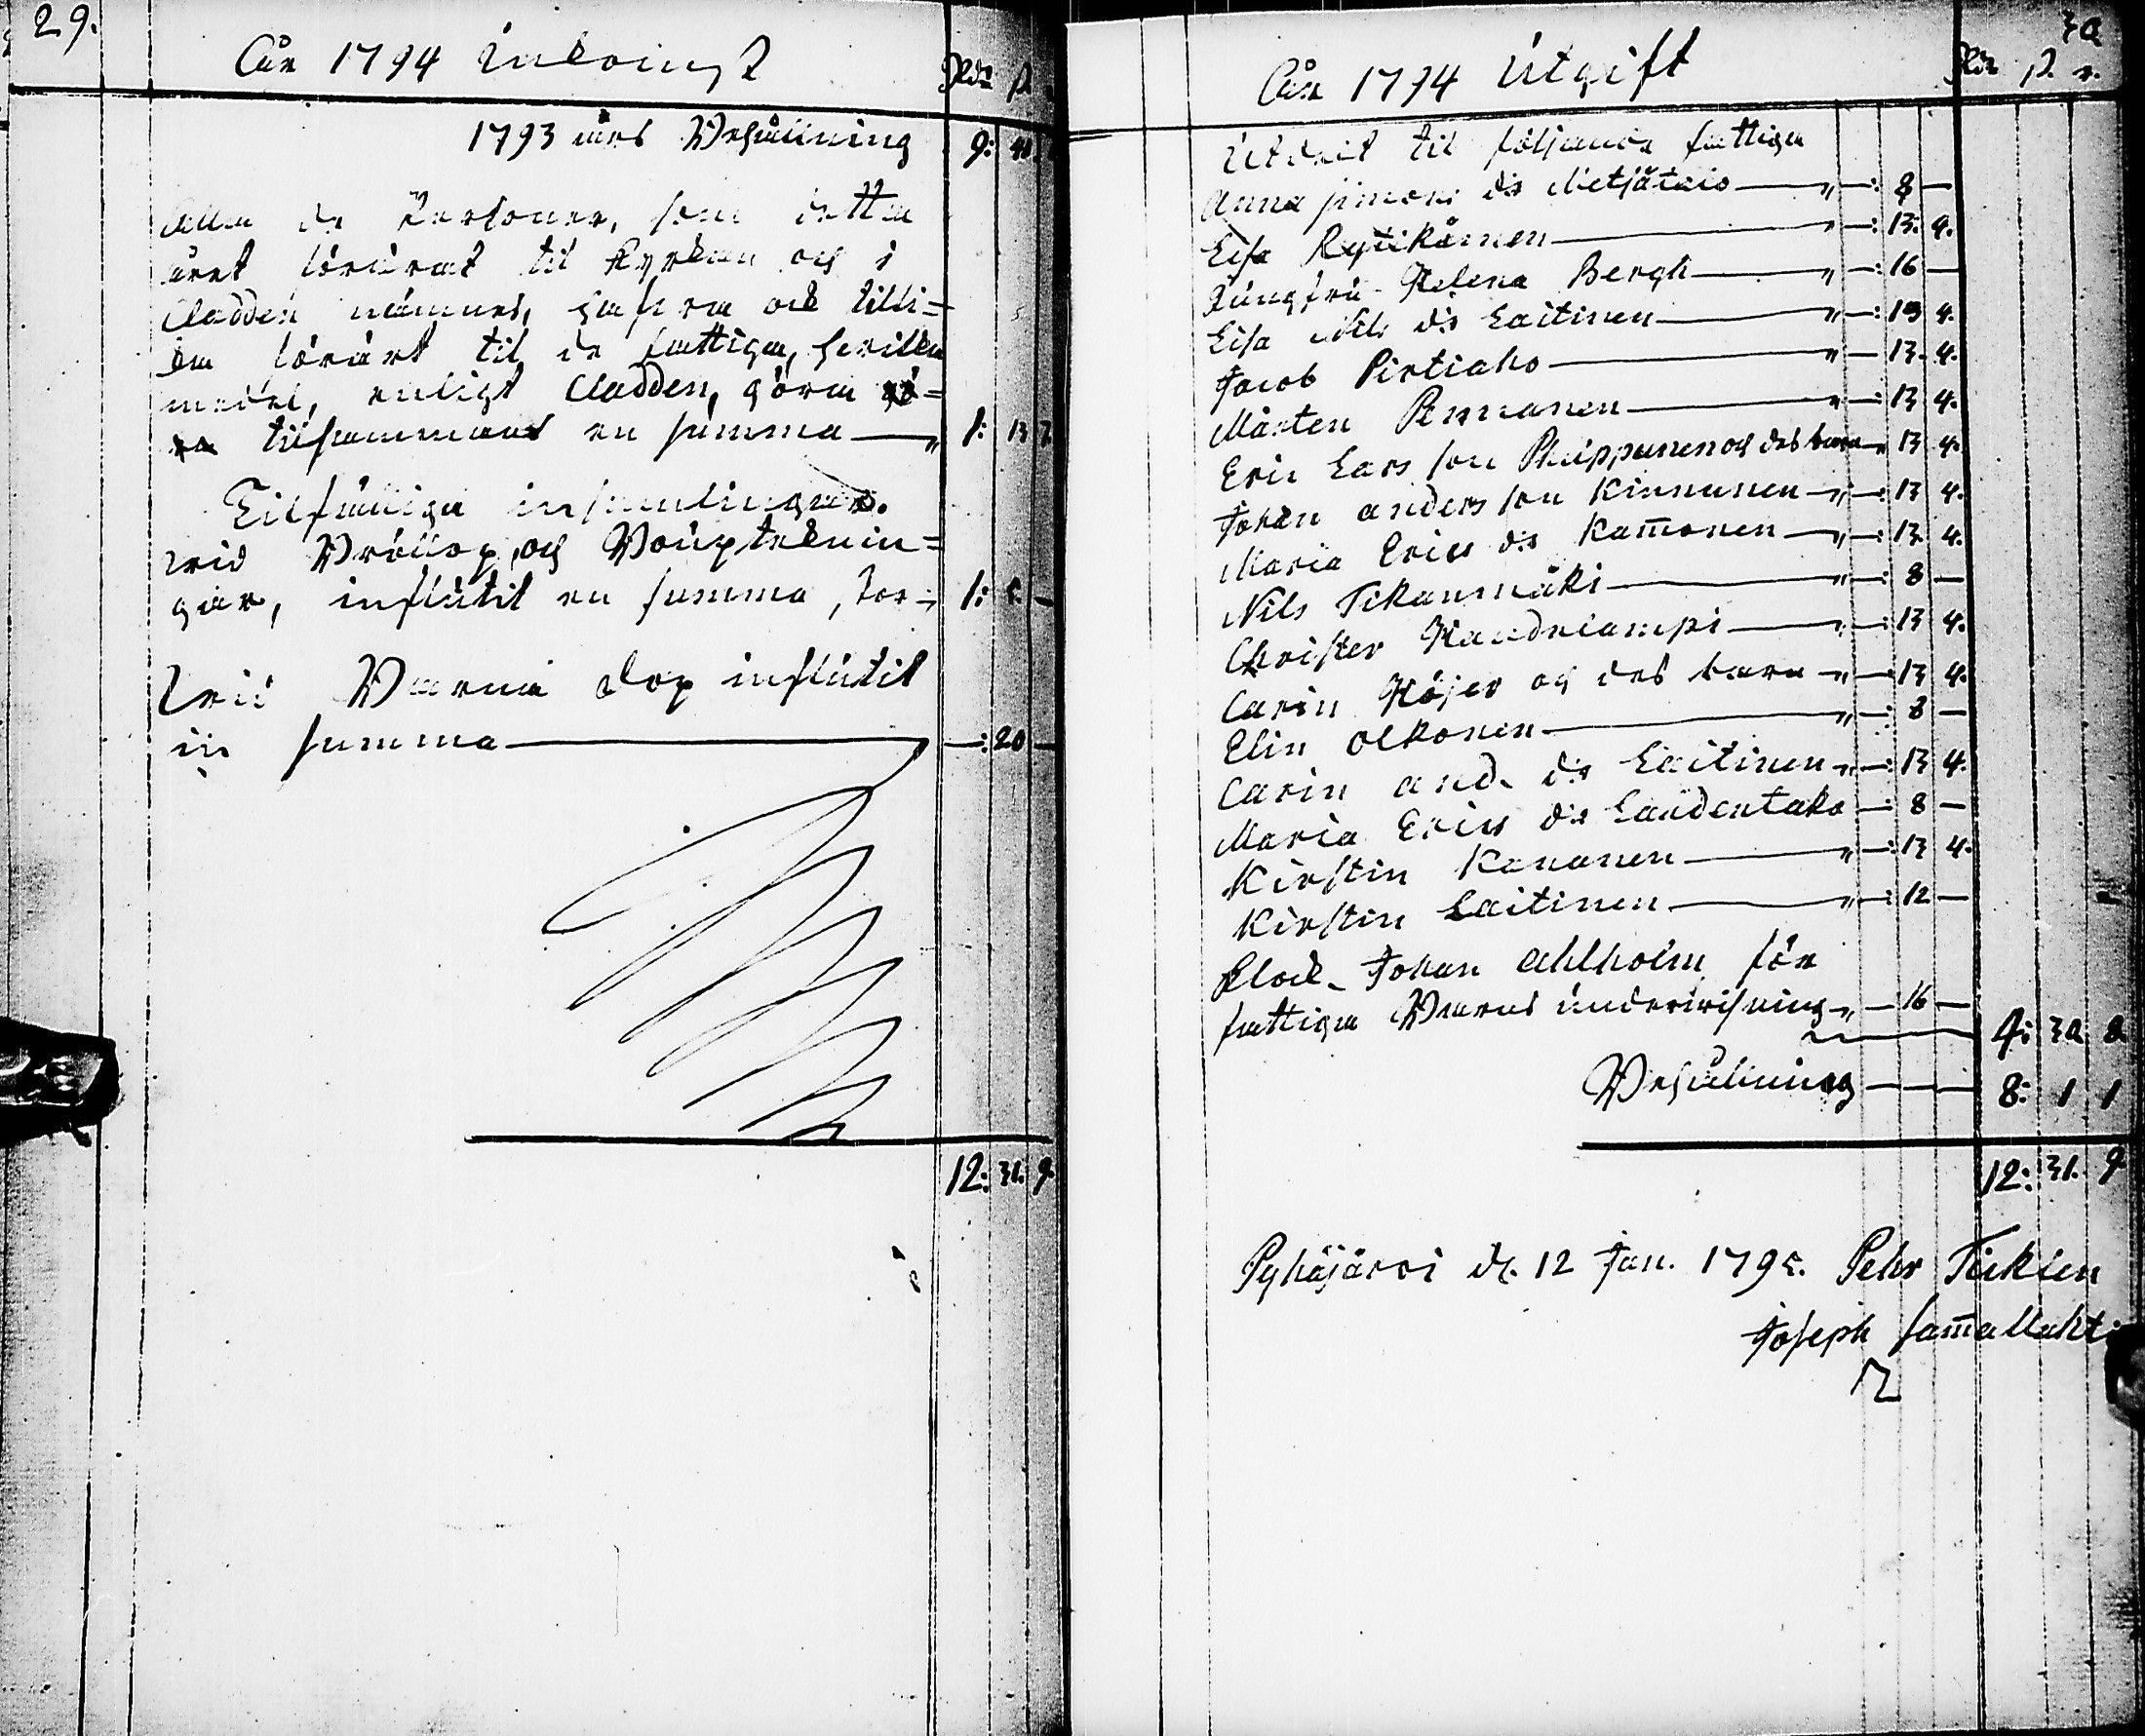 29.
År 1794 Inkomst Rdr ß
1793 års Behållning 9: 41
Alla de Personer, som detta
året förärat til Kyrkan och i
Cladden nämnes, hafva ock tilli=
ka förärt til de fattiga, hvilka
medel, enligt Cladden, göra
tilsammans en summa — „ 1: 13 7
Tilfälliga insamlingar.
wid Bröllop, och Boupteknin=
gar, influtit en summa, stor — 1: 5. —
Wid Barna dop influtit
in summa — —: 20 —
12: 31. 9.
30
År 1794 Utgift Rdr ß. r.
Utdeit til följande fattiga
Anna Simons dr Metjätais — „ —: 8 —
Lisa Rytikäinen — „ —: 13. 4.
Jungfru Helena Bergh — „ —: 16 —
Lisa Nils dr Laitinen — „ —: 13 4.
Jacob Pirtiaho — „ — 13. 4.
Mårten Pennanen — „ —: 13 4.
Eric Lars son Philppunen och des barn „ 13 4.
Johan anders son Kinnunen — „ —: 13 4.
Maria Erics dr Kam̄onen — „ —: 13. 4.
Nils Tikanmäki — „ —: 8 —
Christer Kandelampi — „ —: 13 4.
Carin Höjer och des barn — „ — 13 4.
Elin Olkonen — „ —: 8 —
Carin and. dr Laitinen — „ —: 13 4.
Maria Erics dr Laudentaka —: 8 —
Kirstin Kananen — „ —: 13 4.
Kirstin Laitinen — „ —: 12 —
Klock. Johan Ahlholm för
fattiga Barns underwisning — „ — 16 —
4: 30 8
Behållning — 8: 1 1
12: 31. 9
Pyhäjärvi d. 12 Jan. 1795. Pehr Tickleen
Joseph Sam̄allahti